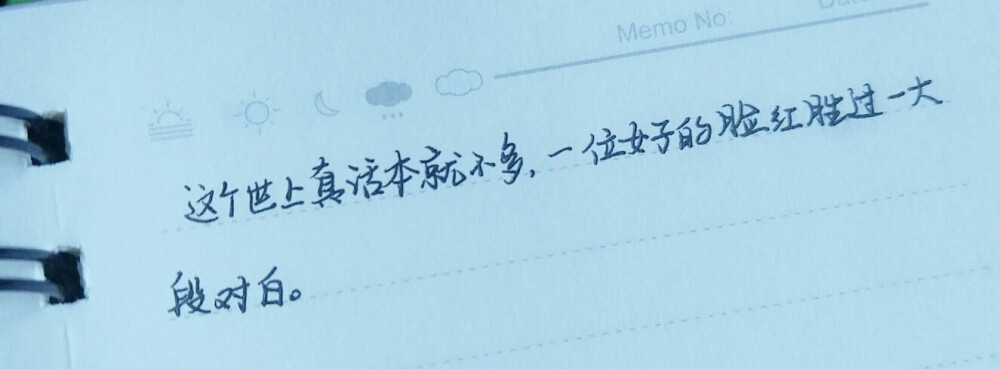 Memo No:
这个世上真话本就不多,一位女子的脸红胜过一大
段对白。